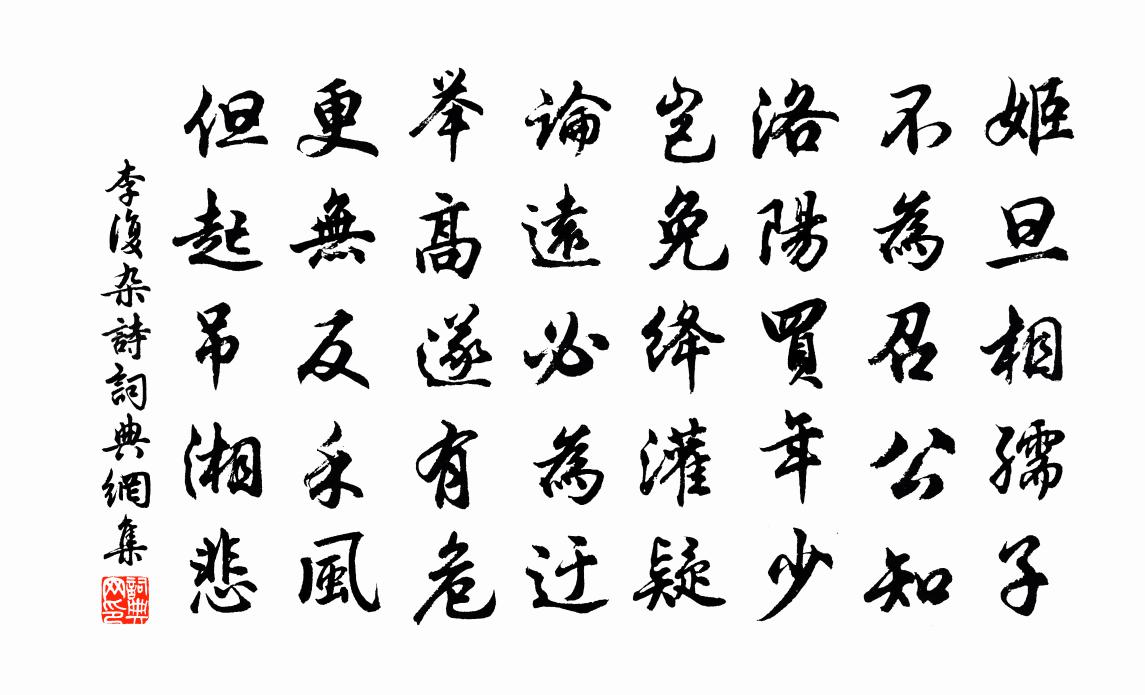 姬旦相孺子
不為召公知
洛陽買年少
豈免絳灌疑
論遠必為迂
举高遂有危
更無反禾風
但起吊湘悲
李復杂詩詞典網集
詞典网印